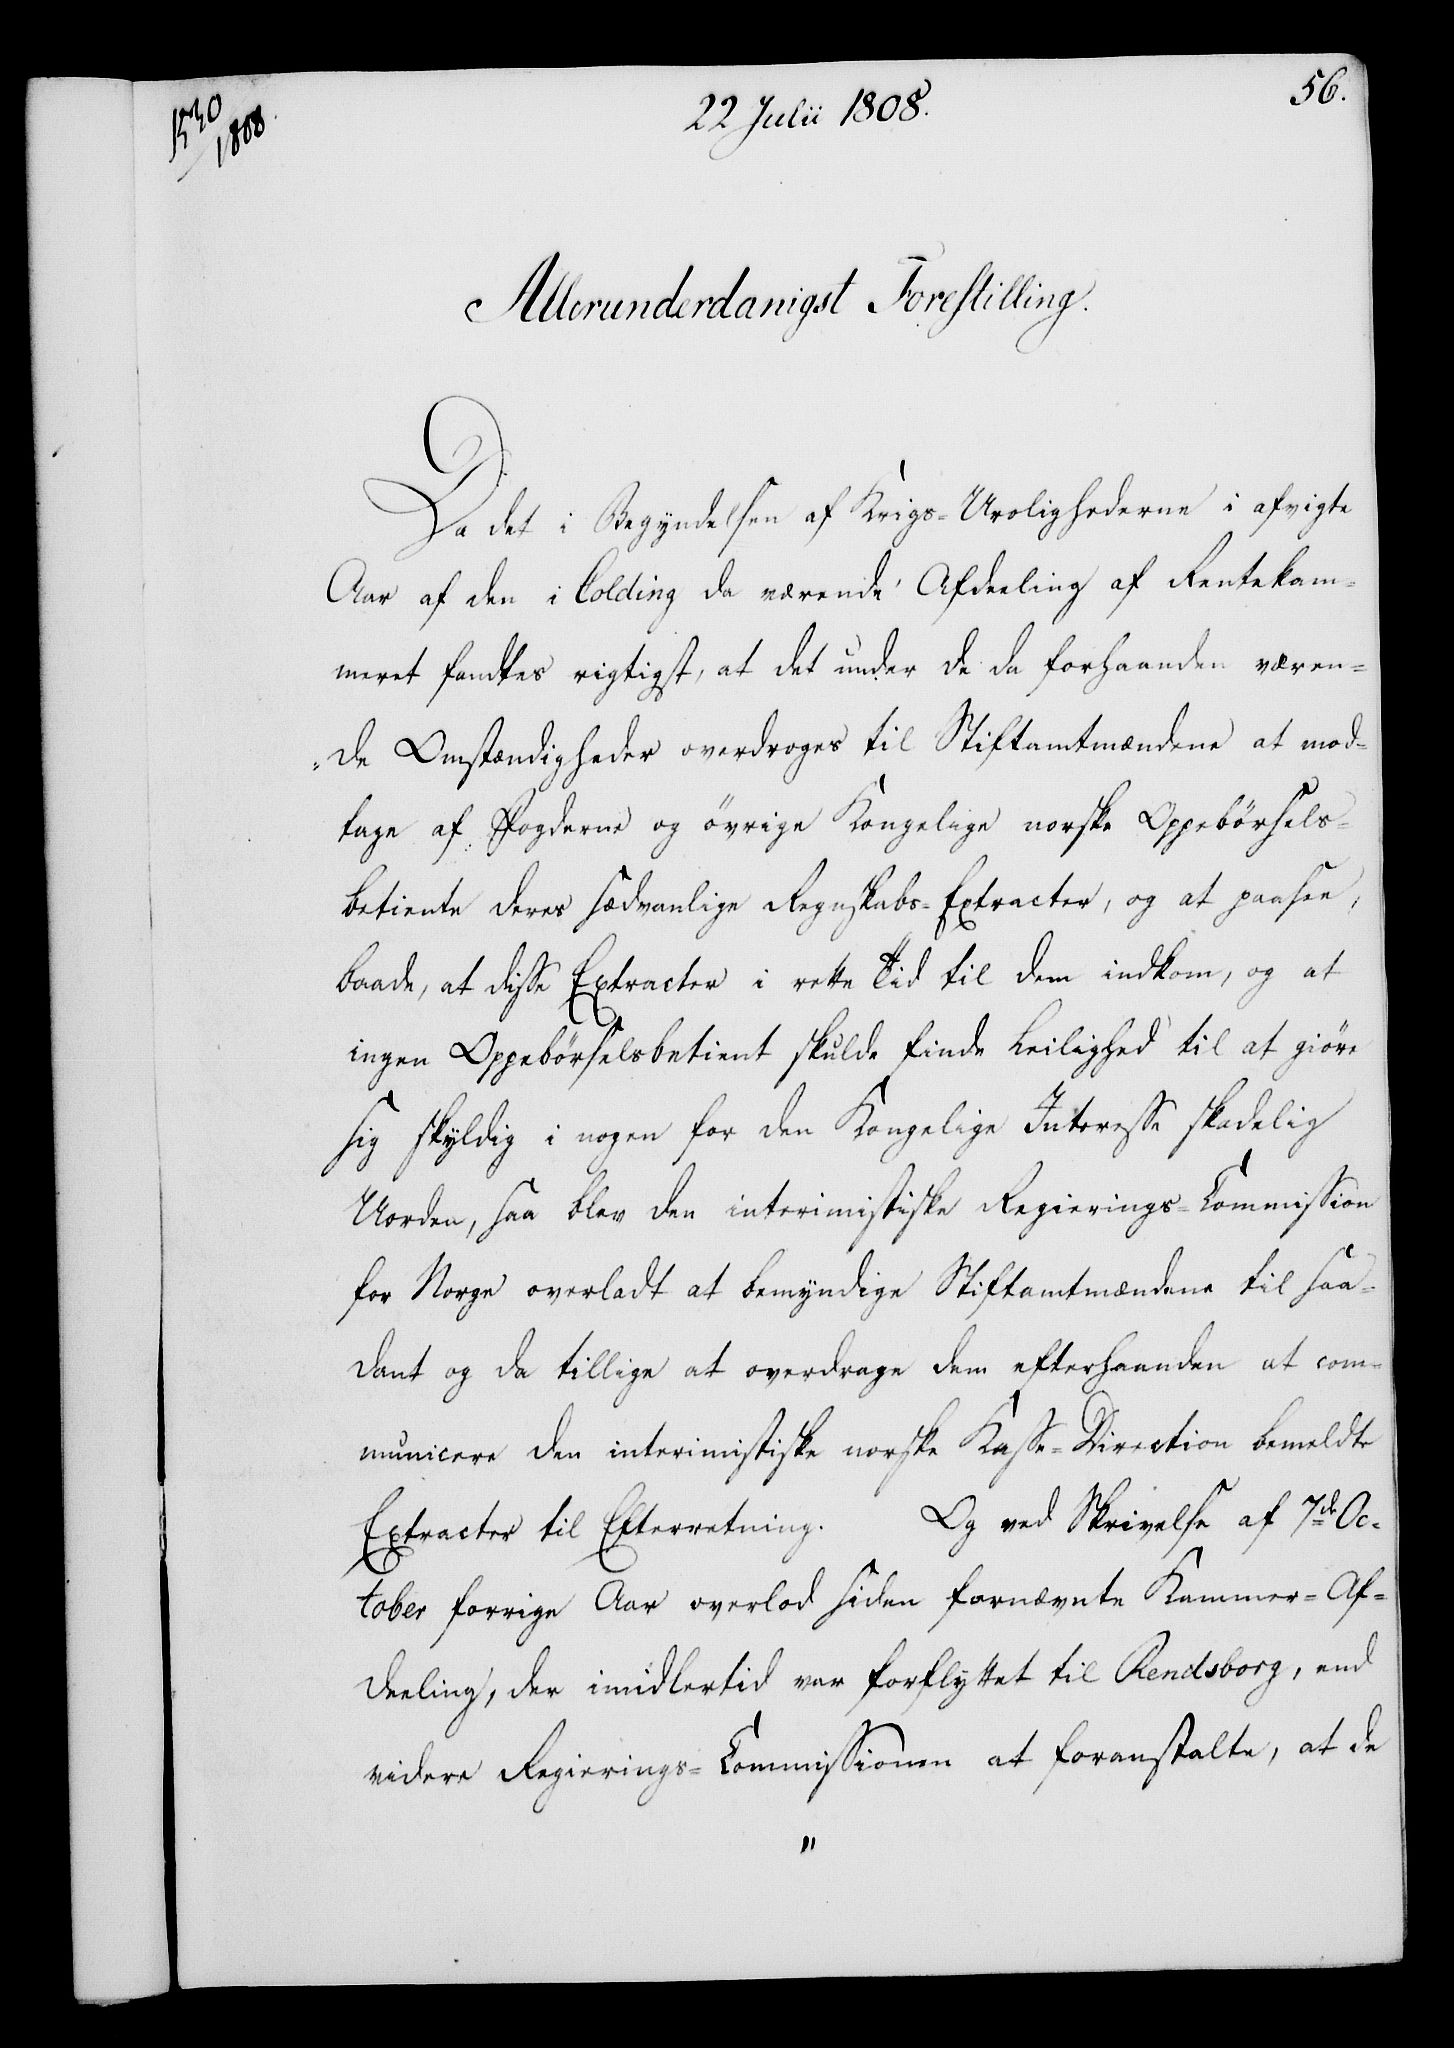 1530
1808.
22 Julii 1808.
56.
Allerunderdanigst Forestilling.
Da det i Begyndelsen af Krigs-Urolighederne i afvigte
Aar af den i Colding da værende Afdeeling af Rentekam-
meret fandtes rigtigst, at det under de da forhaanden væren-
de Omstændigheder overdroges til Stiftamtmændene at mod-
tage af Fogderne og övrige Kongelige norske Oppebörsels-
betiente deres sædvanlige Regnskabs-Extracter, og at paasee,
baade, at disse Extracter i rette Tid til dem indkom, og at
ingen Oppebörselsbetient skulde finde Leilighed til at giöre
sig skyldig i nogen for den Kongelige Interesse skadelig
Uorden, saa blev den interimistiske Regierings-Commission
for Norge overladt at bemyndige Stiftamtmændene til saa-
dant og da tillige at overdrage dem efterhaanden at com-
municere den interimistiske norske Kasse-Direction bemeldte
Extracter til Efterretning. Og ved Skrivelse af 7de Oc-
tober forrige Aar overlod siden fornævnte Kammer-Af-
deeling, der imidlertid var forflyttet til Rendsborg, end
videre Regierings-Commissionen at foranstalte, at de
"